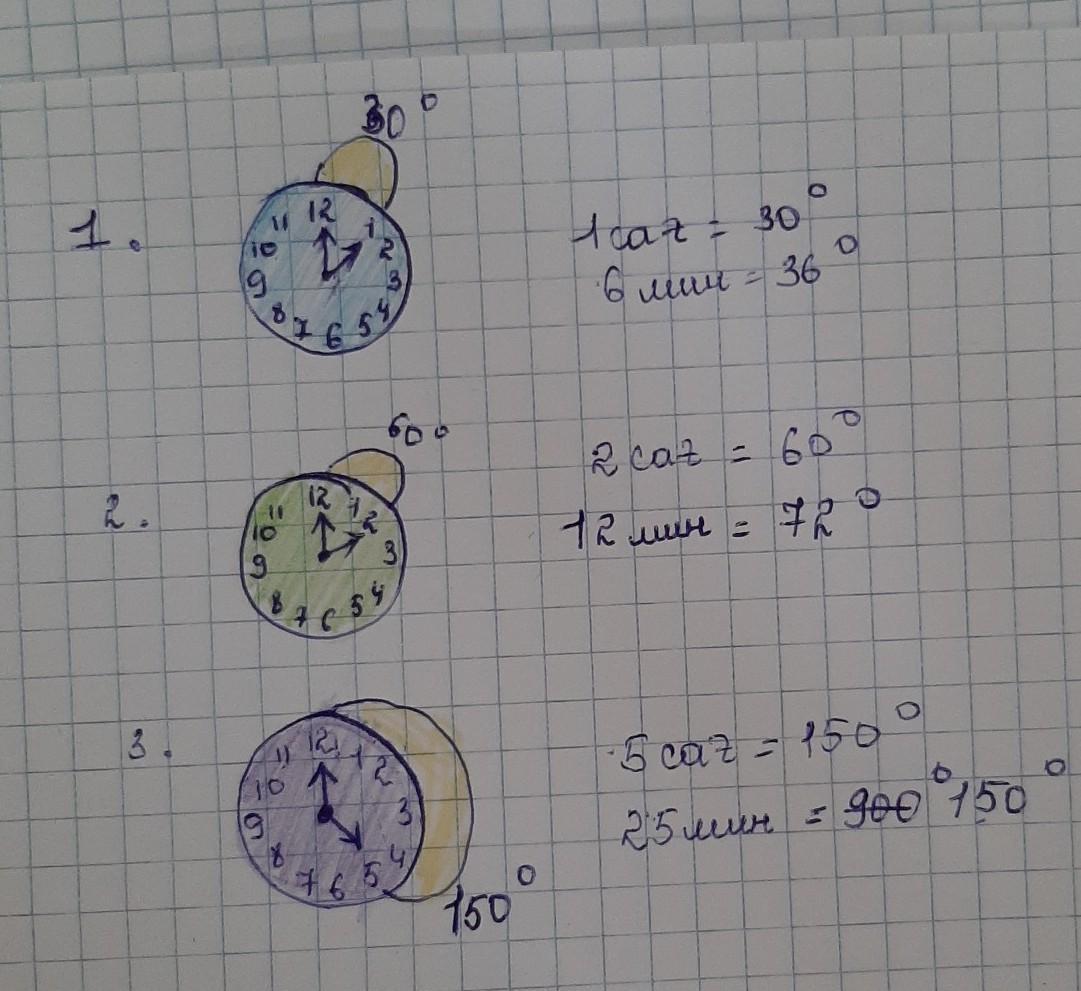 30°
1.
12
11 1
10 2
9 3
8 4
7 6 5
1 сағ = 30°
6 мин = 36°
60°
2.
12
11 1
10 2
9 3
8 4
7 6 5
2 сағ = 60°
12 мин = 72°
3.
12
11 1
10 2
9 3
8 4
7 6 5
150°
5 сағ = 150°
25 мин = 900° 150°